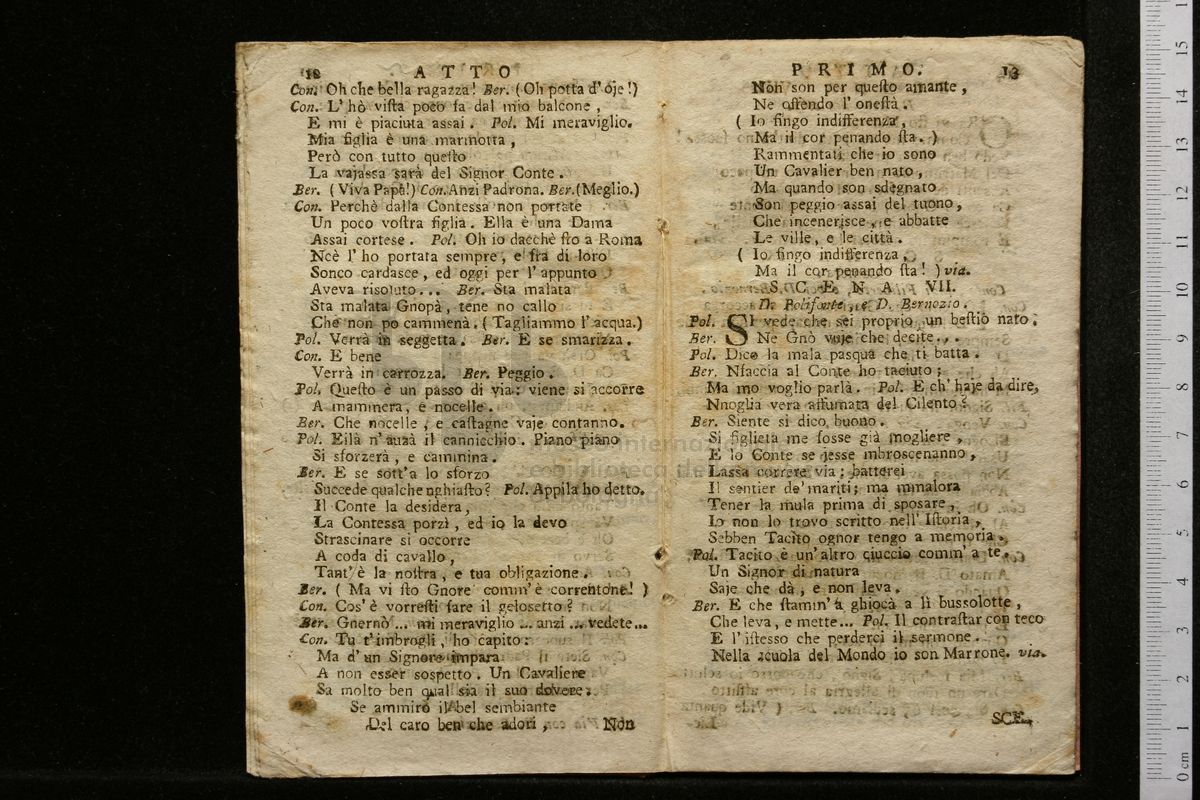 12 ATTO
Con. Oh che bella ragazza! Ber. (Oh potta d'oje!)
Con. L'hò vista poco fa dal mio balcone,
E mi è piaciuta assai. Pol. Mi meraviglio.
Mia figlia è una marmotta,
Però con tutto questo
La vajassa sarà del Signor Conte.
Ber. (Viva Papè!) Con. Anzi Padrona. Ber. (Meglio.)
Con. Perchè dalla Contessa non portate
Un poco vostra figlia. Ella è una Dama
Assai cortese. Pol. Oh io dacchè sto a Roma
Ncè l'ho portata sempre, e fra di loro
Sonco cardasce, ed oggi per l'appunto
Aveva risoluto... Ber. Sta malata
Sta malata Gnopà, tene no callo
Che non po cammenà. (Tagliammo l'acqua.)
Pol. Verrà in seggetta. Ber. E se smarizza.
Con. E bene
Verrà in carrozza. Ber. Peggio.
Pol. Questo è un passo di via: viene si accorre
A mammera, e nocelle.
Ber. Che nocelle, e castagne vaje contanno.
Pol. Eilà n'auzà il cannicchio. Piano piano
Si sforzerà, e cammina.
Ber. E se sott'a lo sforzo
Succede qualche nghiasto? Pol. Appila ho detto.
Il Conte la desidera,
La Contessa porzì, ed io la devo
Strascinare si occorre
A coda di cavallo,
Tant'è la nostra, e tua obligazione.
Ber. (Ma vi sto Gnore comm'è correntone!)
Con. Cos'è vorresti fare il gelosetto?
Ber. Gnernò... mi meraviglio... anzi... vedete...
Con. Tu t'imbrogli, ho capito:
Ma d'un Signore impara
A non esser sospetto. Un Cavaliere
Sa molto ben qual sia il suo dovere.
Se ammiro il bel sembiante
Del caro ben che adori, Non
PRIMO. 13
Non son per questo amante,
Ne offendo l'onestà.
(Io fingo indifferenza,
Ma il cor penando sta.)
Rammentati che io sono
Un Cavalier ben nato,
Ma quando son sdegnato
Son peggio assai del tuono,
Che incenerisce, e abbatte
Le ville, e le città.
(Io fingo indifferenza,
Ma il cor penando sta!) via.
SCENA VII.
D. Polifonte, e D. Bernozio.
Pol. SI vede che sei proprio un bestiò nato.
Ber. Ne Gnò vuje che decite...
Pol. Dico la mala pasqua che ti batta.
Ber. Nfaccia al Conte ho taciuto;
Ma mo voglio parlà. Pol. E ch'haje da dire,
Nnoglia vera affumata del Cilento?
Ber. Siente si dico buono.
Si figlieta me fosse già mogliere,
E lo Conte se jesse mbroscenanno,
Lassa correre via; batterei
Il sentier de'mariti; ma mmalora
Tener la mula prima di sposare,
Io non lo trovo scritto nell'Istoria,
Sebben Tacito ognor tengo a memoria.
Pol. Tacito è un'altro ciuccio comm'a te.
Un Signor di natura
Saje che dà, e non leva.
Ber. E che stamm'à ghiocà a li bussolotte,
Che leva, e mette... Pol. Il contrastar con teco
E l'istesso che perderci il sermone.
Nella scuola del Mondo io son Marrone. via.
SCE-